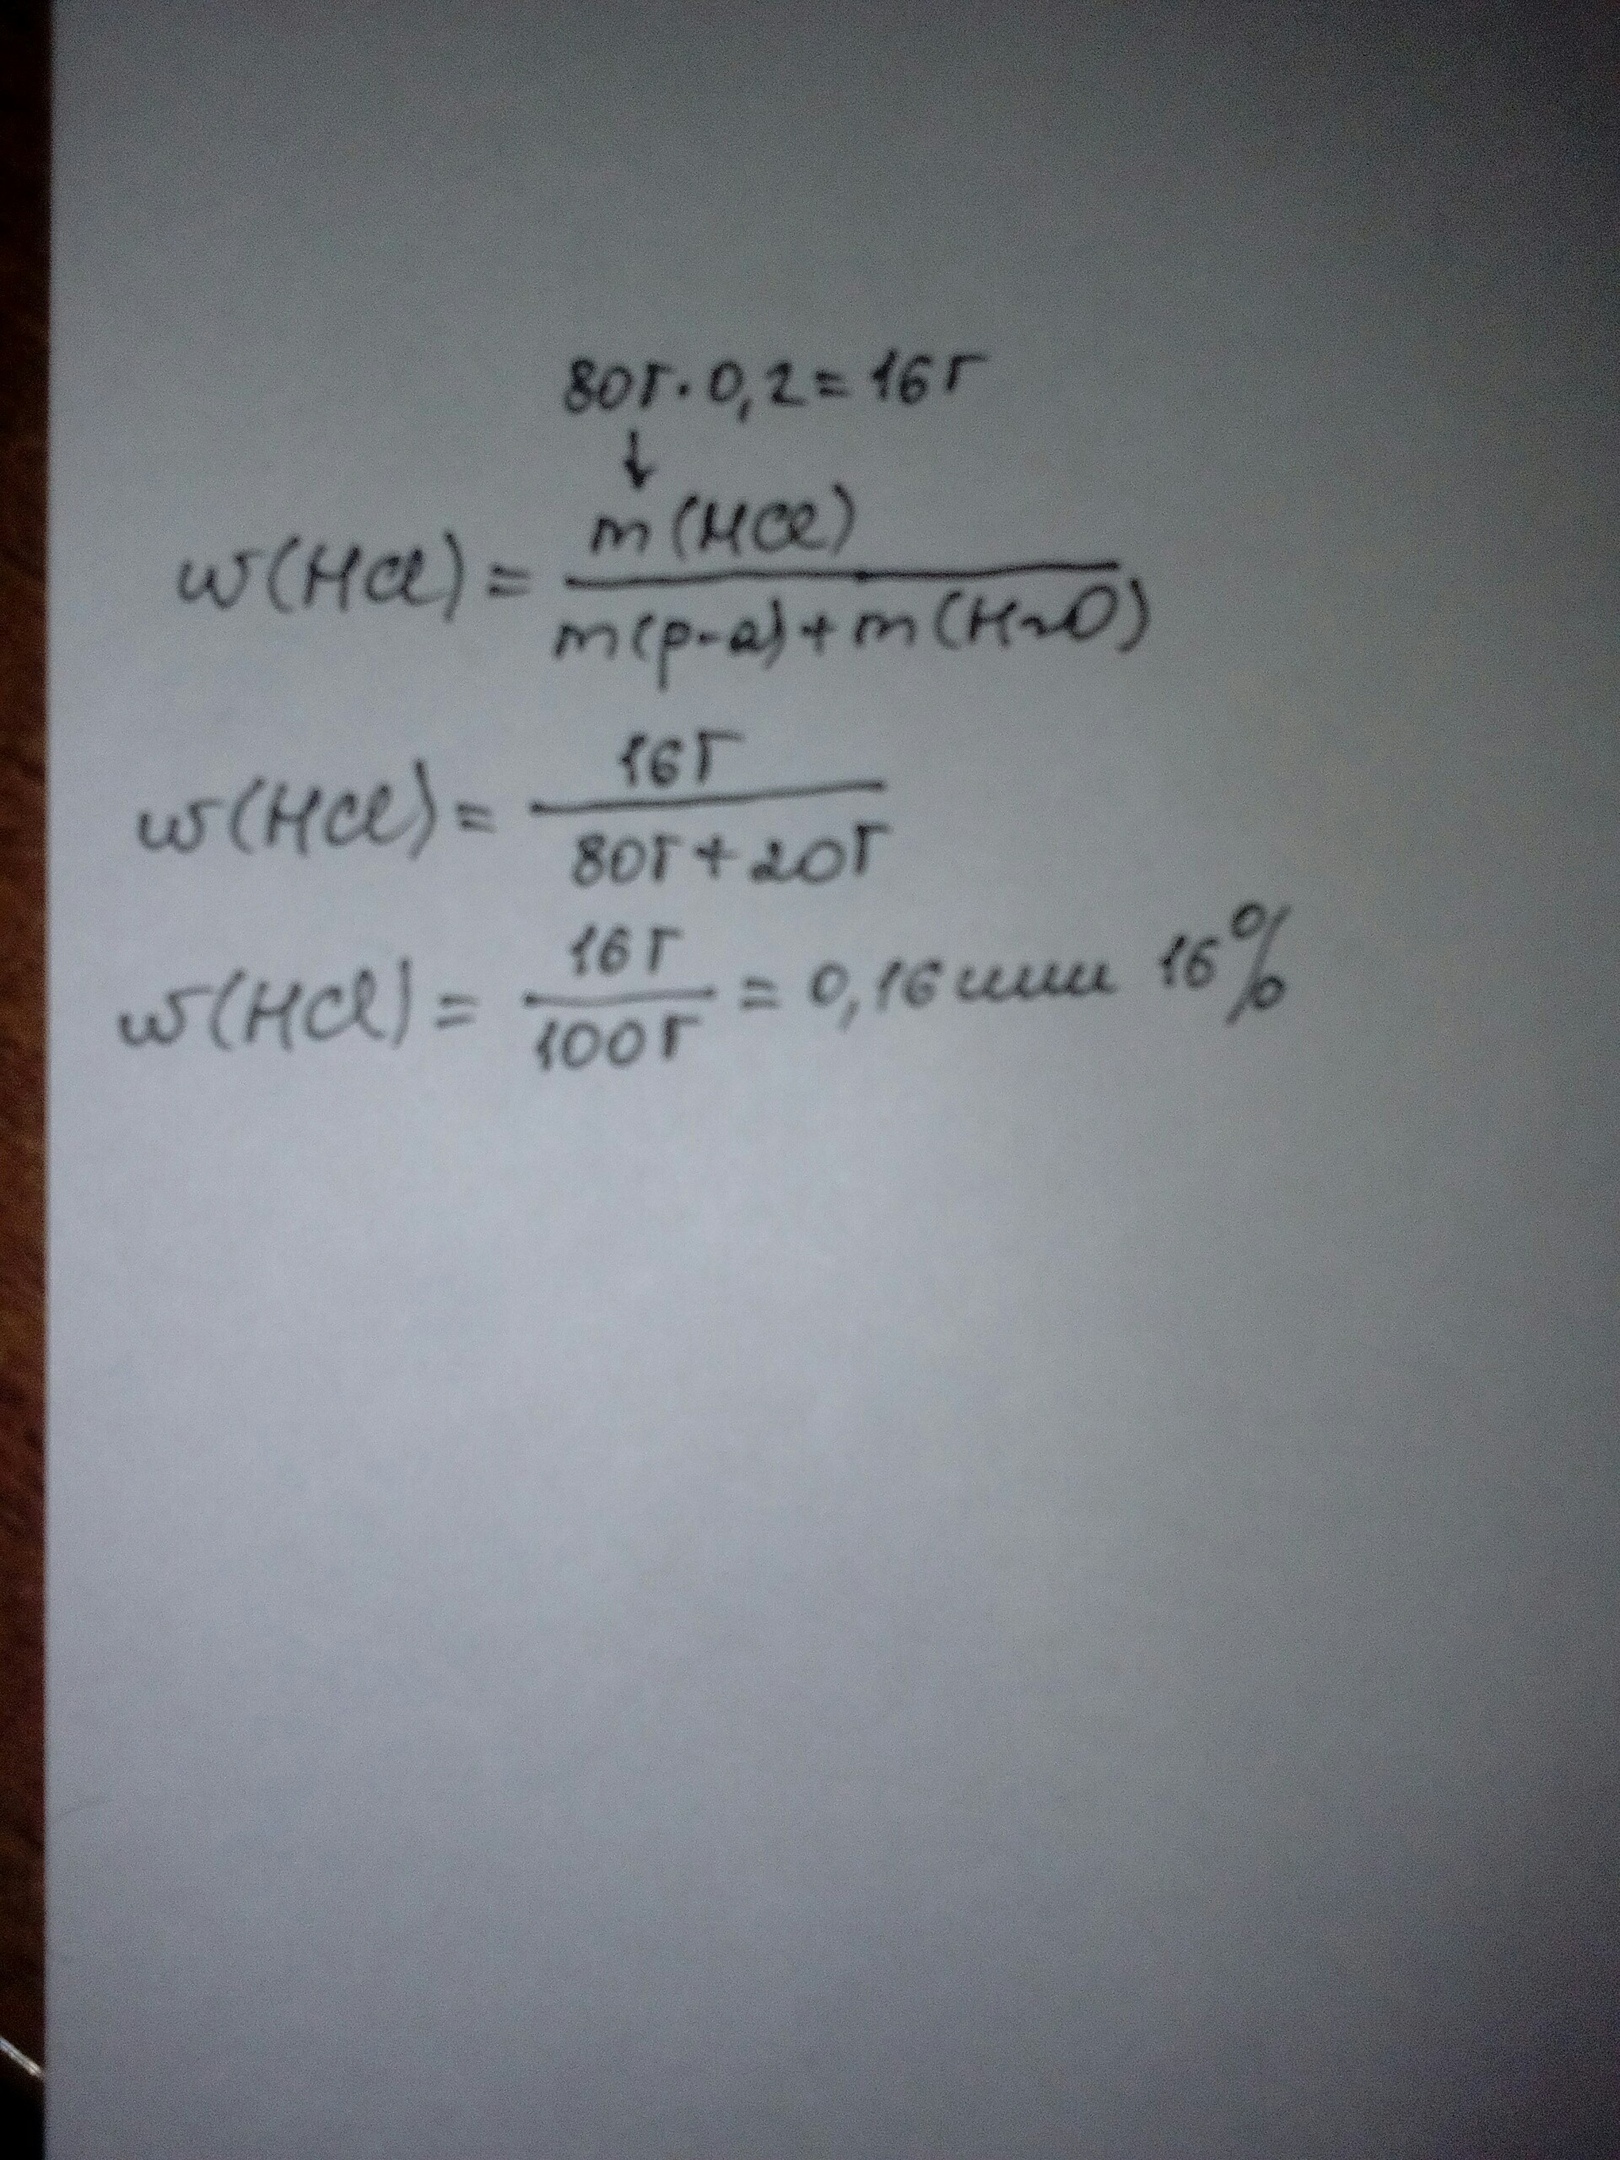 80г·0,2=16г
↓
w(HCl)= m(HCl) / m(р-а)+m(H₂O)
w(HCl)= 16г / 80г+20г
w(HCl)= 16г / 100г = 0,16 или 16%